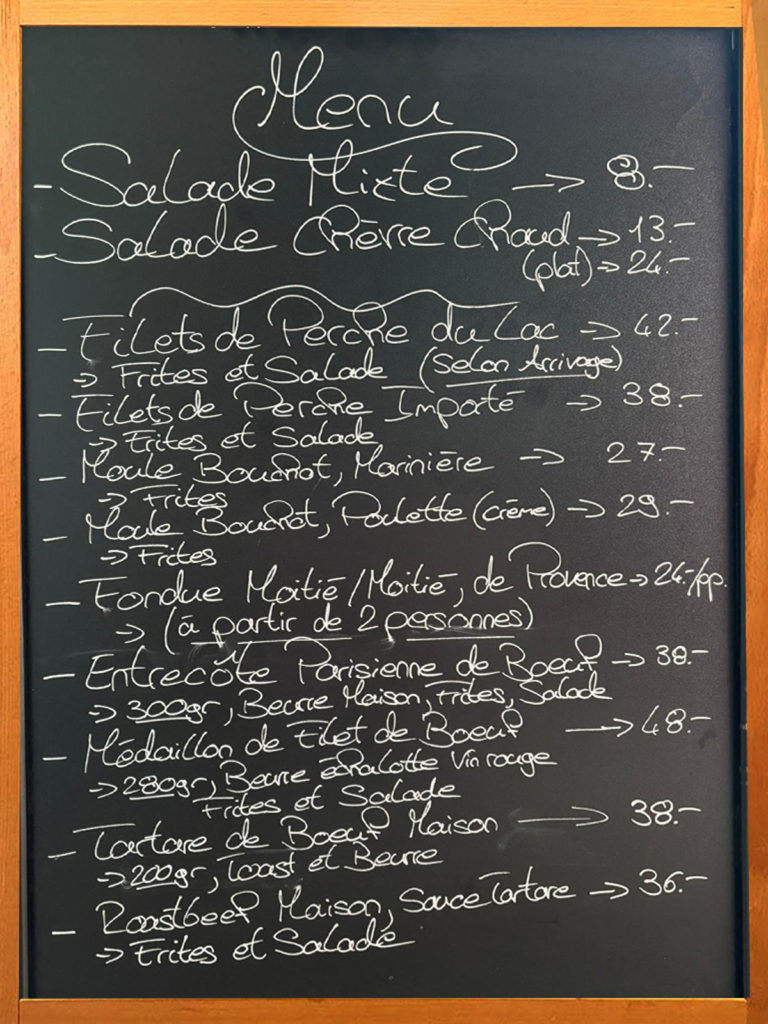 Menu
- Salade Mixte → 8.-
- Salade Chèvre Chaud → 13.-
(plat) → 24.-
- Filets de Perche du Lac → 42.-
→ Frites et Salade (Selon Arrivage)
- Filets de Perche Importé → 38.-
→ Frites et Salade
- Moule Bouchot, Marinière → 27.-
→ Frites
- Moule Bouchot, Poulette (crème) → 29.-
→ Frites
- Fondue Moitié/Moitié, de Provence → 24.-/pp.
→ (à partir de 2 personnes)
- Entrecôte Parisienne de Boeuf → 38.-
→ 300gr, Beurre Maison, Frites, Salade
- Médaillon de Filet de Boeuf → 48.-
→ 280gr, Beurre échalotte Vin rouge
Frites et Salade
- Tartare de Boeuf Maison → 38.-
→ 200gr, Toast et Beurre
- Roastbeef Maison, Sauce Tartare → 36.-
→ Frites et Salade